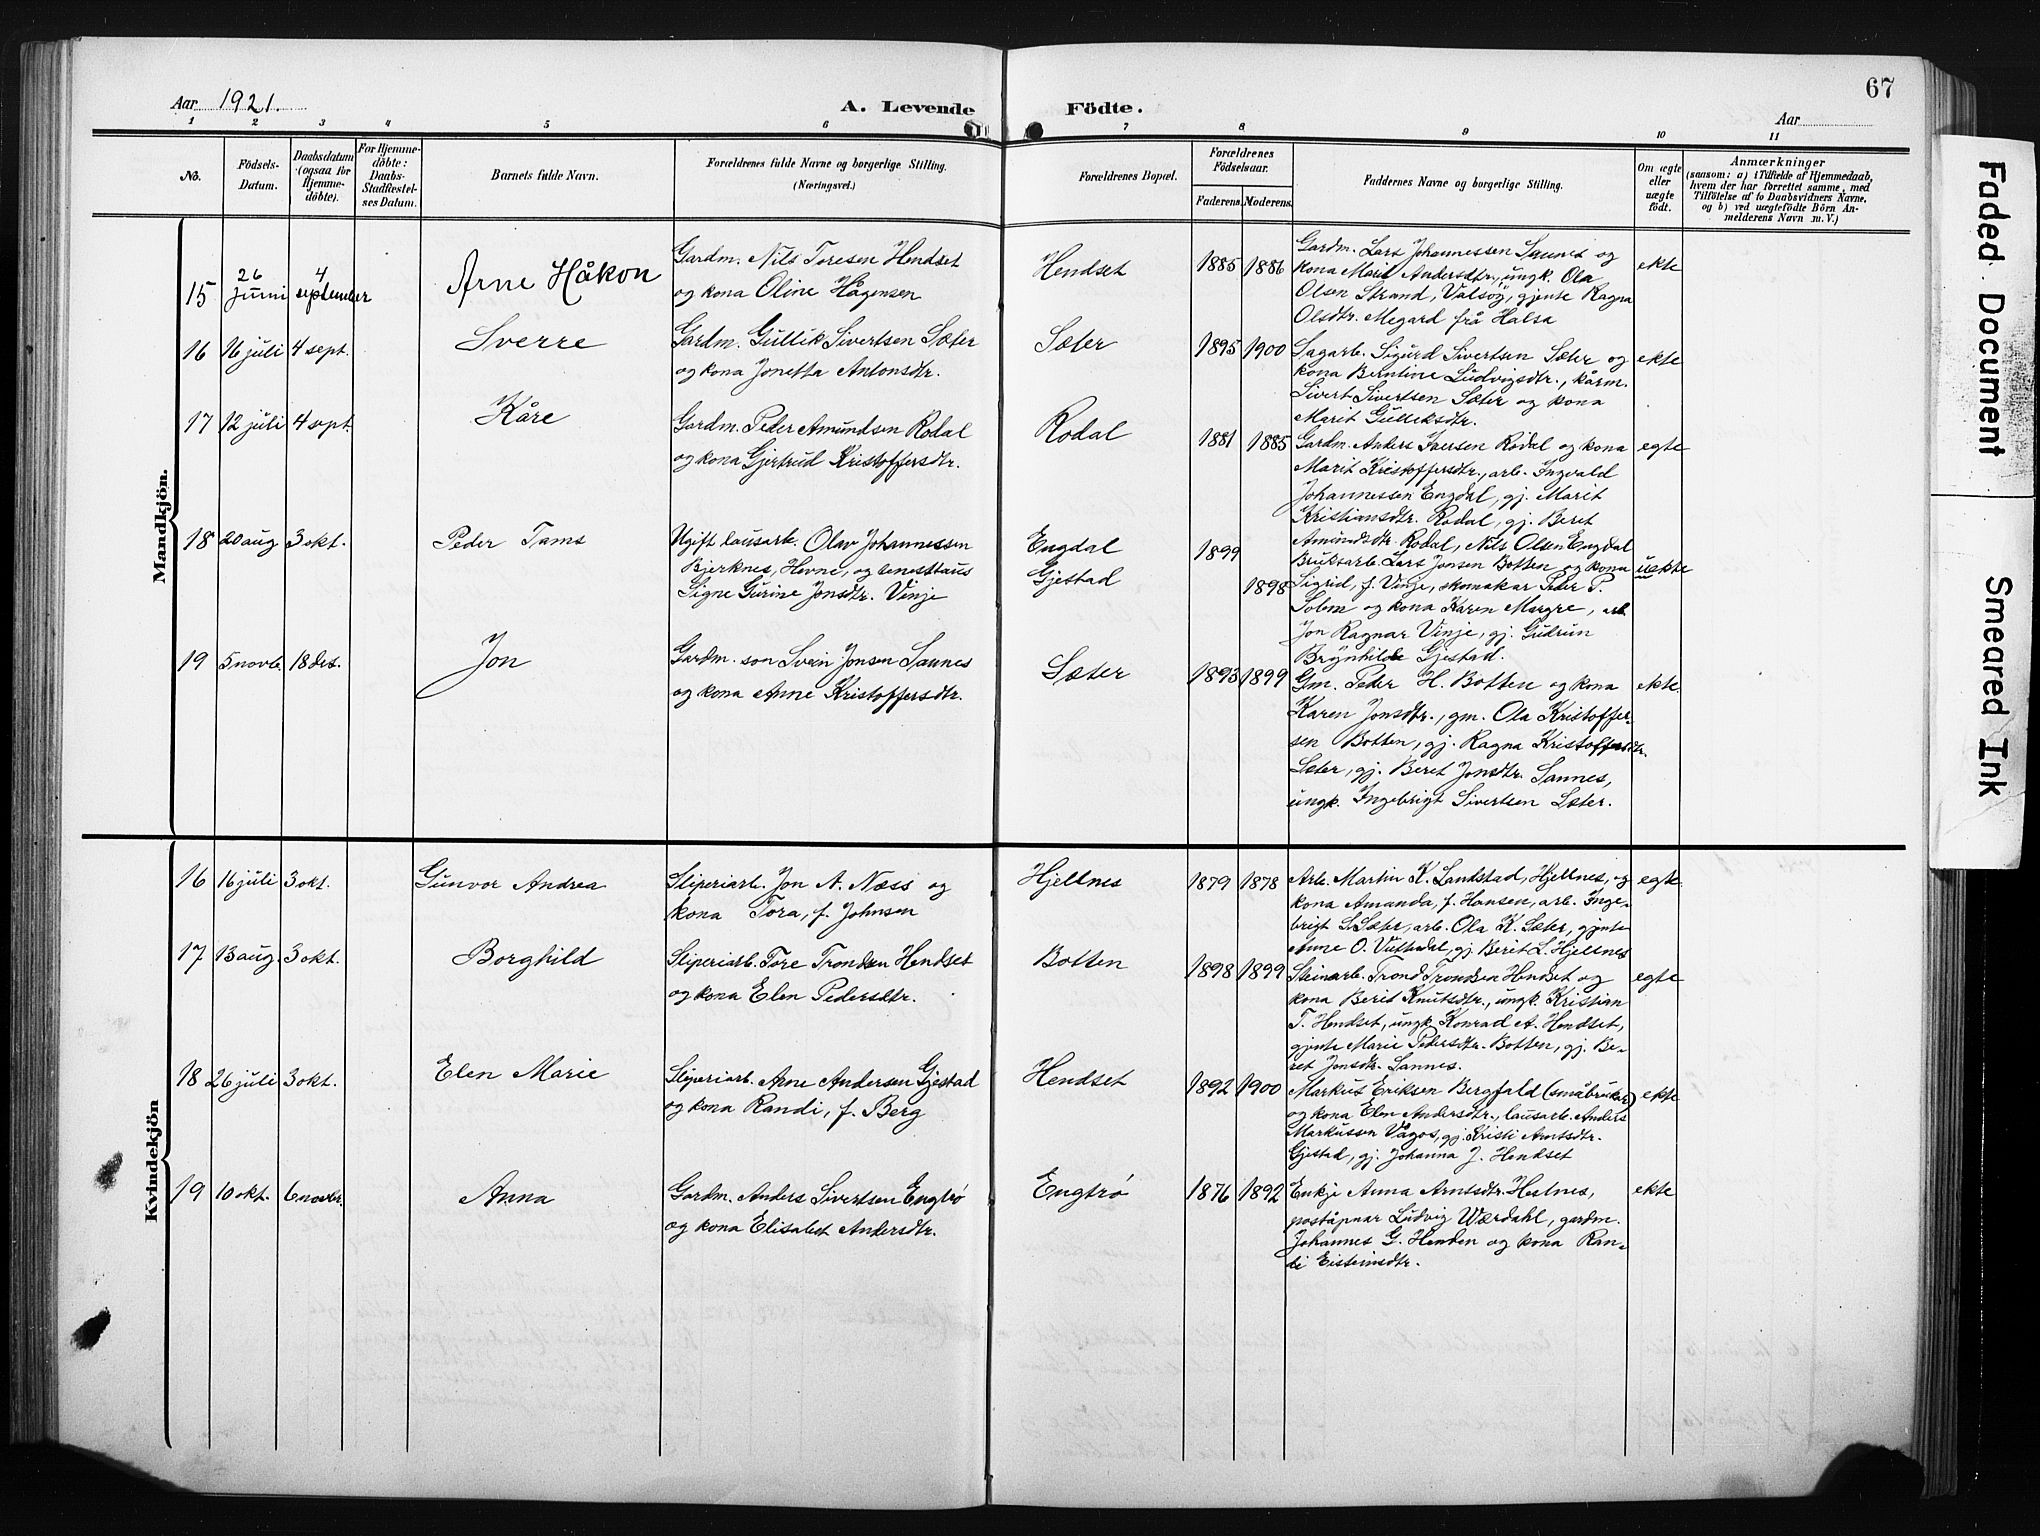 67
Aar 1921.
A. Levende Födte.
Aar
1 2 3 4 5 6 7 8 9 10 11
No.
Födsels-
Datum.
Daabsdatum
(ogsaa for
Hjemme-
döbte).
For Hjemme-
döbte:
Daabs-
Stadfæstel-
ses Datum.
Barnets fulde Navn.
Forældrenes fulde Navne og borgerlige Stilling.
(Næringsvei.)
Forældrenes Bopæl.
Forældrenes
Födselsaar.
Faderens.
Moderens.
Faddernes Navne og borgerlige Stilling.
Om ægte
eller
uægte
födt.
Anmærkninger
(saasom: a) i Tilfælde af Hjemmedaab,
hvem der har forrettet samme, med
Tilföielse af to Daabsvidners Navne,
og b) ved uægtefödte Börn An-
melderens Navn m. V.)
Mandkjön.
15
26
juni
4
september
Arne Håkon
Gardm. Nils Toresen Hendset
og kona Oline Hågensen
Hendset
1885 1886
Gardm. Lars Johannessen Sannes og
kona Marit Andersdtr., ungk. Ola
Olsen Strand, Valsøy, gjente Ragna
Olsdtr. Megard frå Halsa
ekte
16 16 juli 4 sept.
Sverre
Gardm. Gullik Sivertsen Sæter
og kona Jonetta Antonsdtr.
Sæter
1895 1900
Sagarb. Sigurd Sivertsen Sæter og
kona Berntine Ludvigsdtr., kårm.
Sivert Sivertsen Sæter og kona
Marit Gulliksdtr.
ekte
17 12 juli 4 sept.
Kåre
Gardm. Peder Amundsen Rodal
og kona Gjertrud Kristoffersdtr.
Rodal
1881 1885
Gardm. Anders Iversen Rodal og kona
Marit Kristoffersdtr., arb. Ingvald
Johannessen Engdal, gj. Marit
Kristiansdtr. Rodal, gj. Beret
Amundsdtr. Rodal, Nils Olsen Engdal
egte
18 20 aug. 3 okt.
Peder Tams
Ugift lausarb. Olav Johannessen
Bjerknes, Hevne, og tenesttaus
Signe Gurine Jonsdtr. Vinje
Engdal
Gjestad
1899
1898
Bruksarb. Lars Jonsen Botten og kona
Sigrid, f. Vinje, skomakar Peder P.
Solem og kona Karen Margre, arb
Jon Ragnar Vinje, gj. Gudrun
Brynhilde Gjestad.
uekte
19 5 novb. 18 des.
Jon
Gardm. son Svein Jonsen Sannes
og kona Anne Kristoffersdtr.
Sæter
1893 1899
Gm. Peder H. Botten og kona
Karen Jonsdtr., gm. Ola Kristoffer-
sen Botten, gj. Ragna Kristoffersdtr.
Sæter, gj. Beret Jonsdtr. Sannes,
ungk. Ingebrigt Sivertsen Sæter.
ekte.
Kvindekjön
16 16 juli 3 okt.
Gunvor Andrea
Sliperiarb. Jon A. Næss og
kona Tora, f. Johnsen
Hjellnes
1879 1878
Arb. Martin K. Landstad, Hjellnes, og
kona Amanda, f. Hansen, arb. Inge-
brigt S. Sæter, arb. Ola K. Sæter, gjente
Anne O. Vuttudal, gj. Berit L. Hjellnes
egte.
17 13 aug. 3 okt.
Borghild
Sliperiarb. Tore Trondsen Hendset
og kona Elen Pedersdtr.
Botten
1898 1899
Steinarb. Trond Trondsen Hendset og
kona Berit Knutsdtr., ungk. Kristian
T. Hendset, ungk. Konrad A. Hendset,
gjente Marie Pedersdtr. Botten, gj. Be-
ret Jonsdtr. Sannes.
egte
18 26 juli 3 okt.
Elen Marie
Sliperiarb. Arne Andersen Gjestad
og kona Randi, f. Berg
Hendset
1892 1900
Markus Eriksen Bergfald (småbruker)
og kona Elen Andersdtr., lausarb. Anders
Markussen Vågos, gj. Kristi Arntsdtr.
Gjestad, gj. Johanna J. Hendset
ekte
19 10 okt. 6 novbr.
Anna
Gardm. Anders Sivertsen Engtrø
og kona Elisabet Andersdtr.
Engtrø
1876 1892
Enkje Anna Arntsdtr. Hestnes,
poståpnar Ludvig Wærdahl, gardm.
Johannes G. Henden og kona Ran-
di Eisteinsdtr.
ekte
Faded Document
Smeared Ink